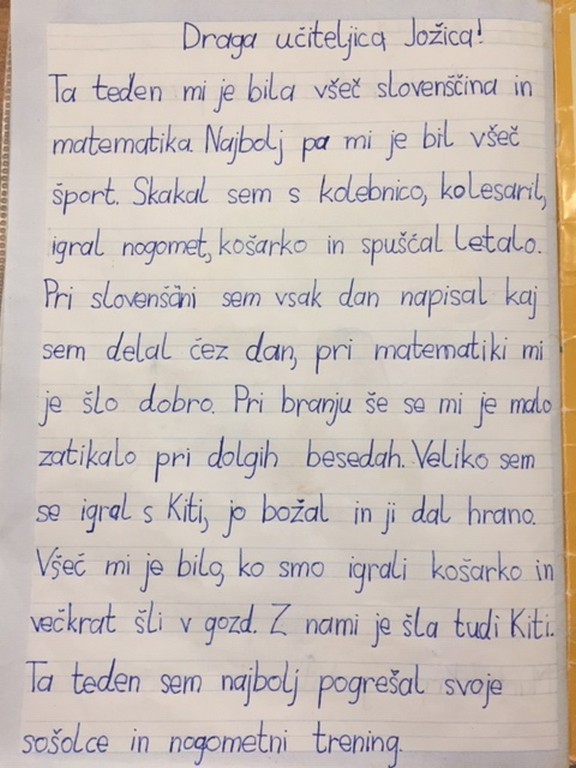 Draga učiteljica Jožica!
Ta teden mi je bila všeč slovenščina in
matematika. Najbolj pa mi je bil všeč
šport. Skakal sem s kolebnico, kolesaril,
igral nogomet, košarko in spuščal letalo.
Pri slovenščini sem vsak dan napisal kaj
sem delal čez dan, pri matematiki mi
je šlo dobro. Pri branju še se mi je malo
zatikalo pri dolgih besedah. Veliko sem
se igral s Kiti, jo božal in ji dal hrano.
Všeč mi je bilo, ko smo igrali košarko in
večkrat šli v gozd. Z nami je šla tudi Kiti.
Ta teden sem najbolj pogrešal svoje
sošolce in nogometni trening.